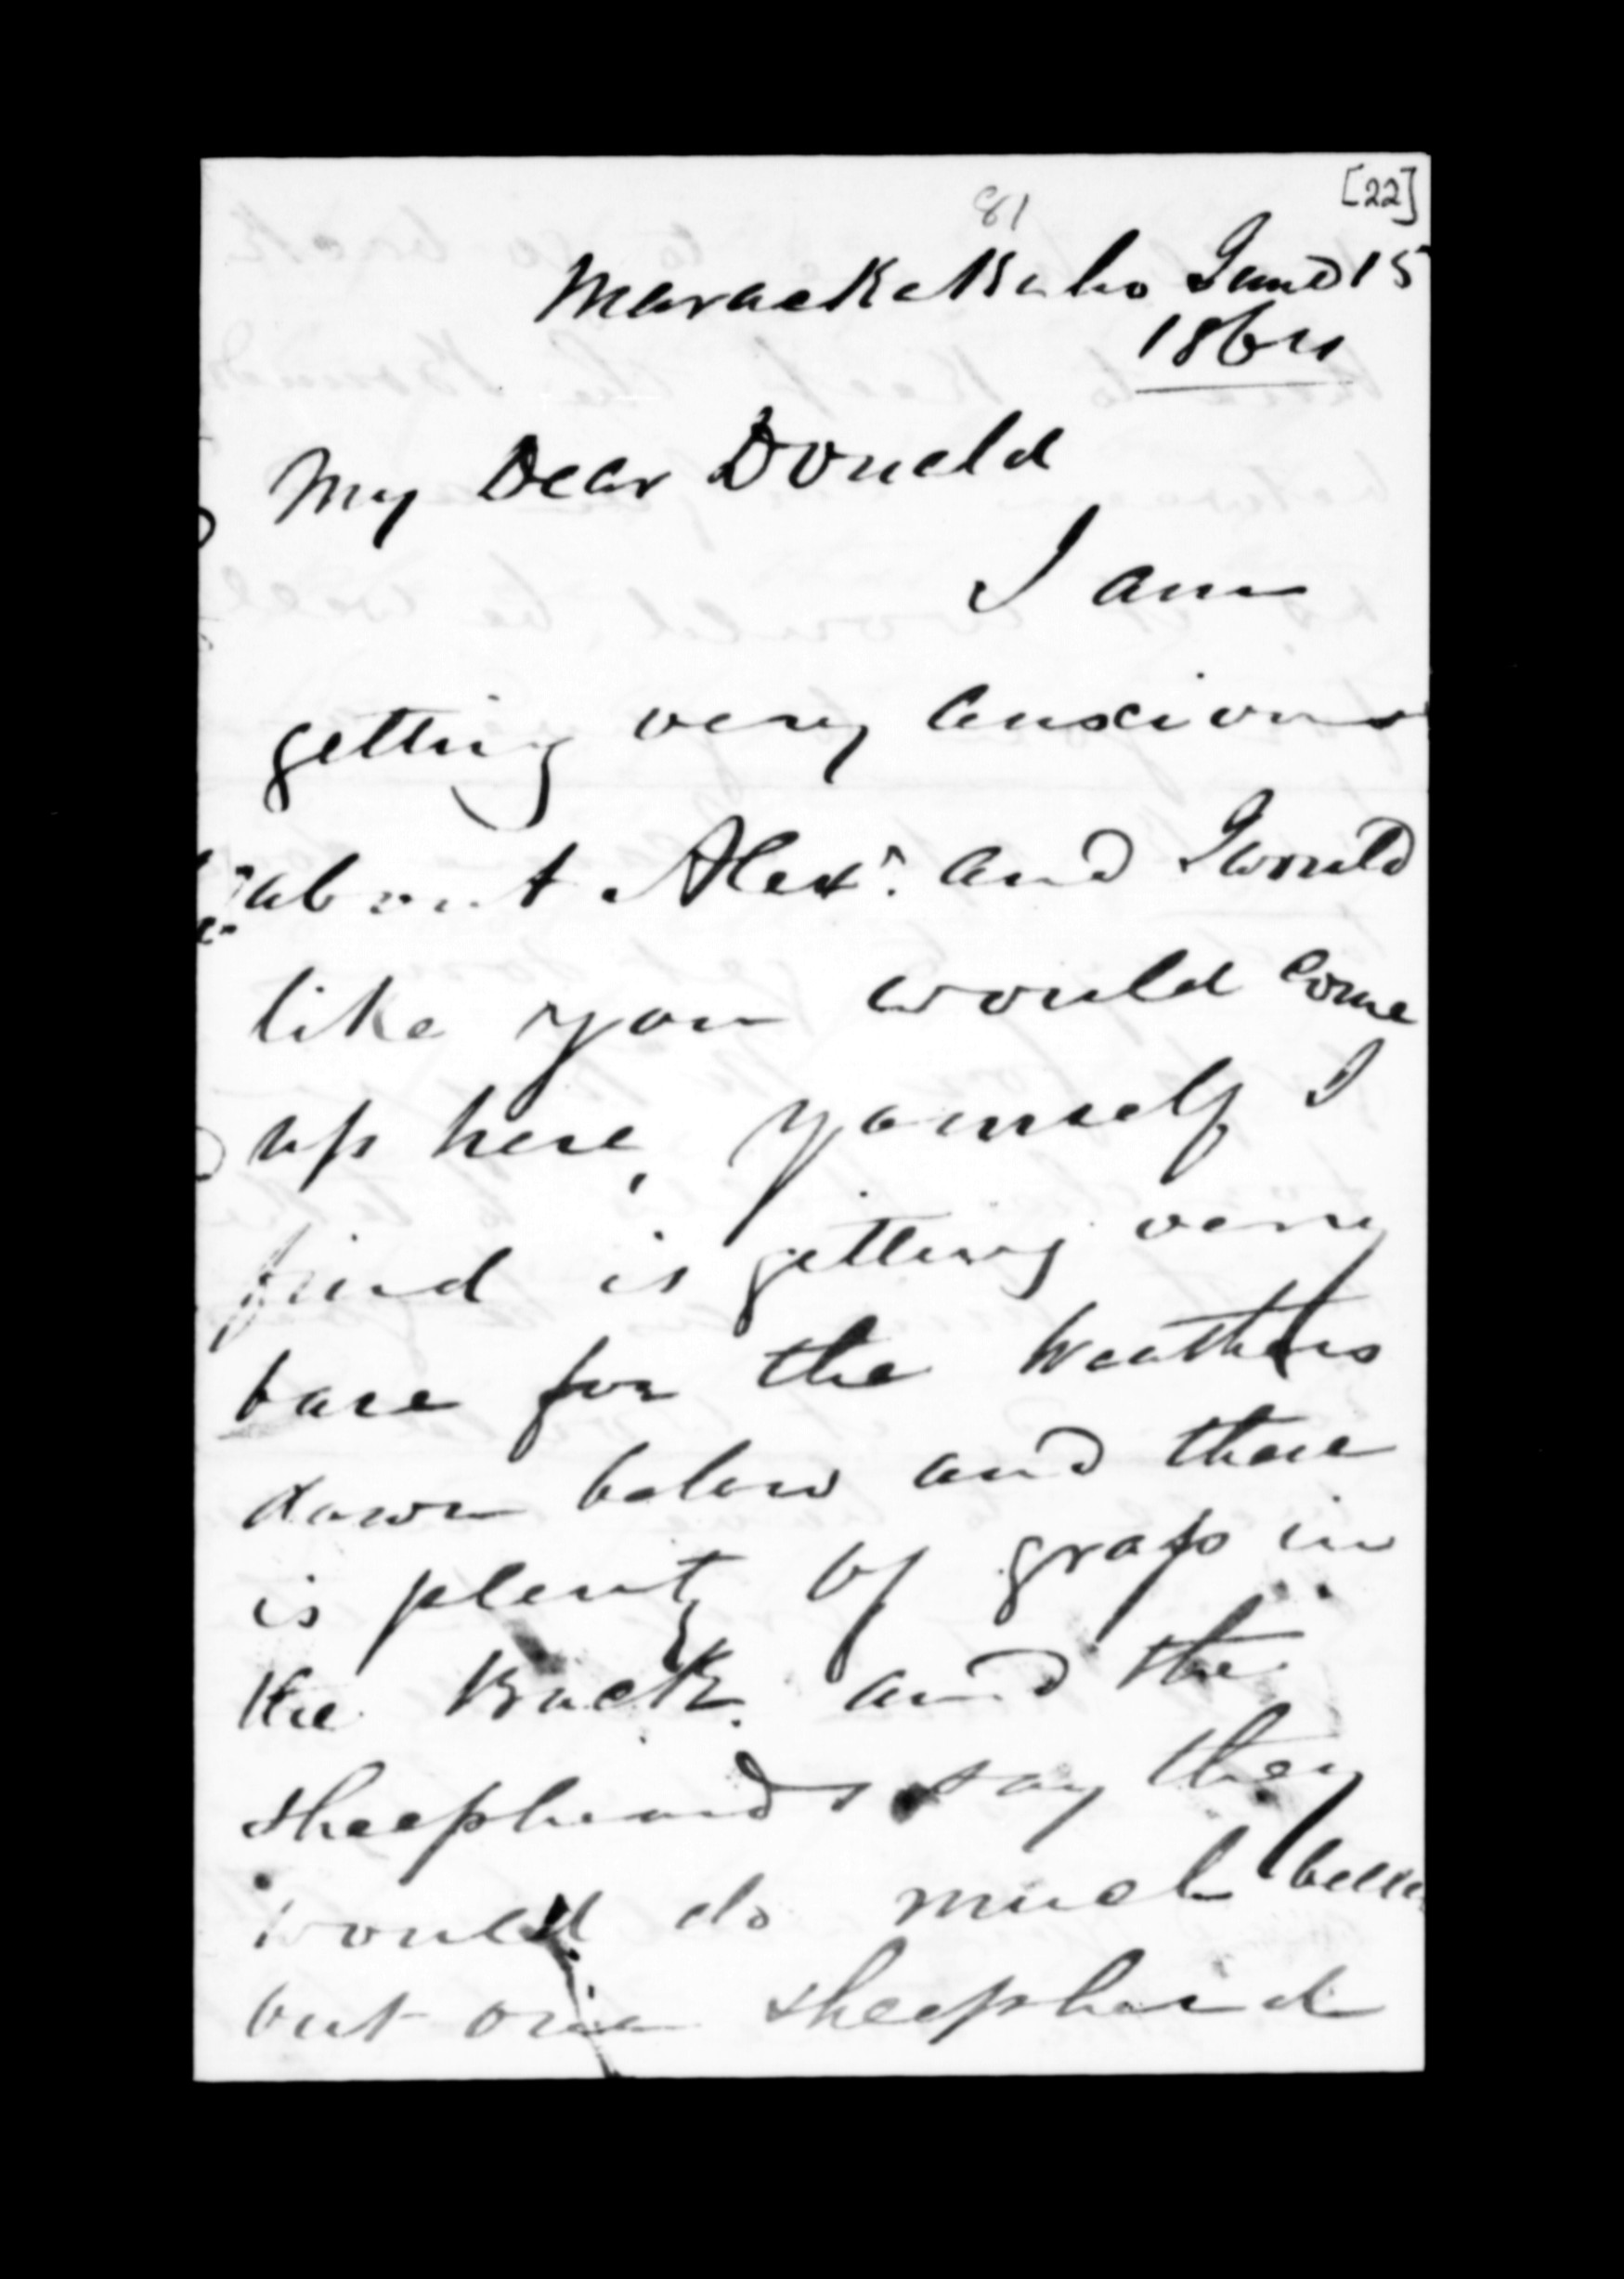 [22]
81
MaraeKeKaho June 15
1864
My Dear Donald
I am
getting very anxious
about Alexr. and I would
like you would come
up here, yourself I
find is getting very
bare for the Weathers
down below and there
is plenty of grass in
the Back. and the
sheepheards say they
would do much better
but one sheepherd